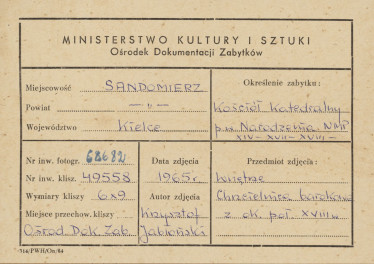 MINISTERSTWO KULTURY I SZTUKI
Ośrodek Dokumentacji Zabytków
Miejscowość SANDOMIERZ
Powiat — „ —
Województwo Kielce
Określenie zabytku:
Kościół Katedralny
p.w. Narodzenia NMP
XIV - XVII - XVIII
Nr inw. fotogr. 68682
Nr inw. klisz. 49558
Wymiary kliszy 6x9
Miejsce przechow. kliszy
Ośrod. Dok. Zab.
Data zdjęcia
1965 r.
Autor zdjęcia
Krzysztof
Jabłoński
Przedmiot zdjęcia:
Wnętrze
Chrzcielnica barokowa
z ok. poł. XVIII w